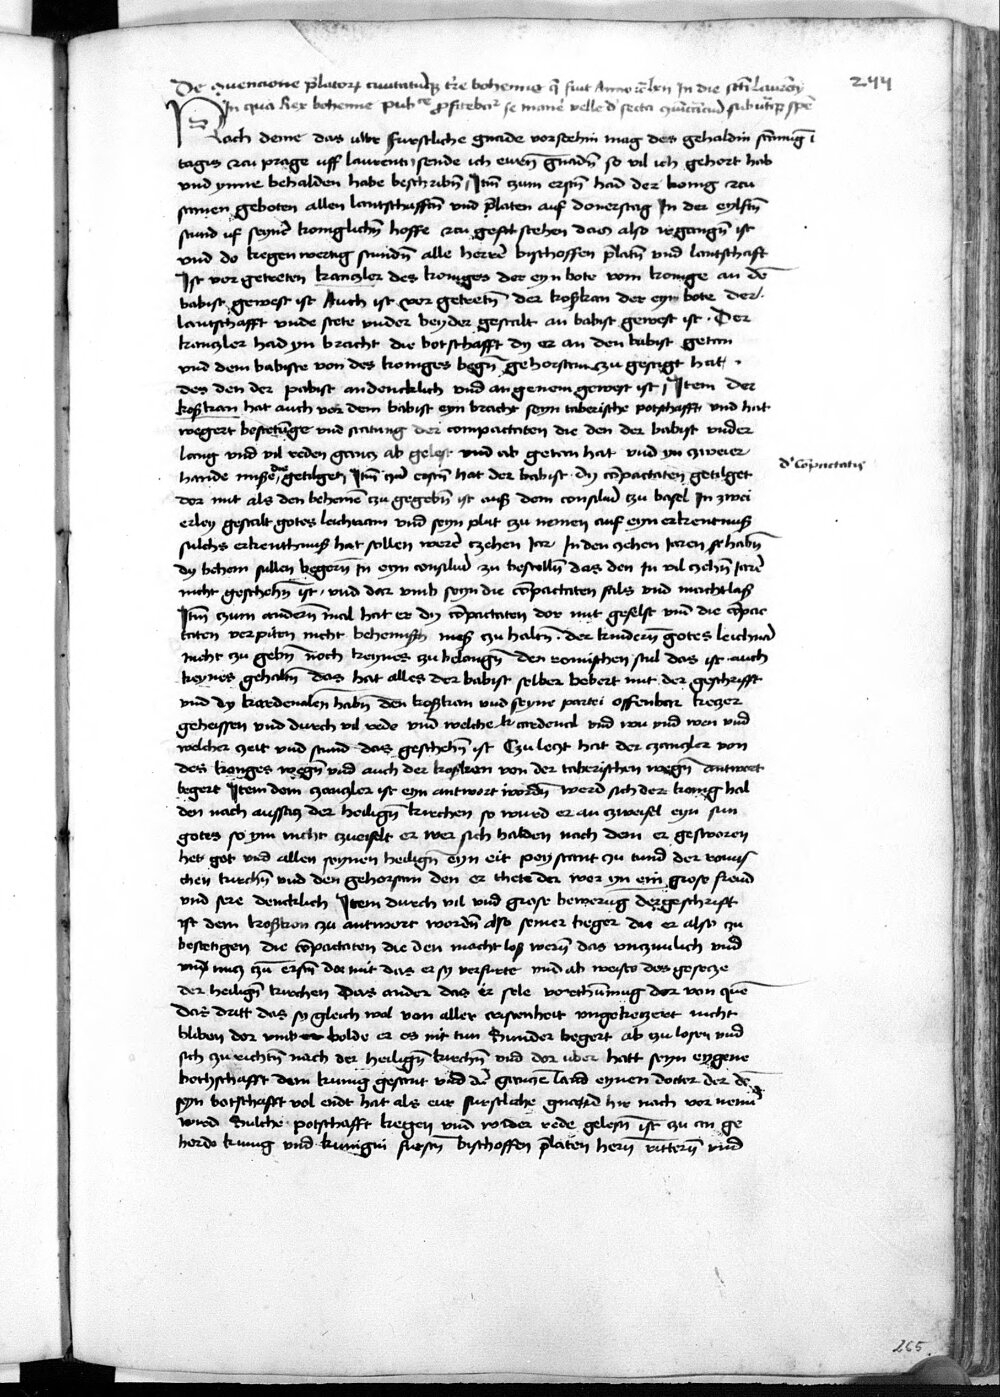 De convencione prelatorum civitatumque terre bohemie que fuit Anno etc lxii In die sancti laurencii
244
In qua Rex bohemie publice profitebatur se manere velle de secta communicancium sub utraque specie
Nach deme das uwr furstliche gnade vorstehin mag des gehaldin
tagis czu prage uff laurentii sende ich ewern gnadin so vil ich gehort hab
und ynne behalden habe beschribn Itm czum erstn had der konig czu
samen geboten allen lantschafftn und prelaten auf donerstag In der eylftn
stund uf seyner koniglichn hoffe czu gestelt stehen das also irgangn ist
und do kegenwertig stundn alle herre bischoffen prelatn und lantschaft
Ist vor getreten kranczler des koniges der eyn bote vom konige an dem
babist gewest ist Auch ist vor getretn der kostkan der eyn bote der
lantschafft unde stete under beyder gestalt an babist gewest ist Der
kranczler had yn bracht die botschafft dy er an den babist getan
und dem babiste von des koniges wegn gehorsam czu gesagt hat
des den der pabist andencklich und angenem gewest ist Item der
kostkan hat auch vor dem babist eyn bracht seyn taberische potschafft und hat
wegert bestetunge und der compactaten die den der babist under
lang und vil reden gancz ab gelest und ab getan hat und yn czweier
de compactatis
hande getilgen Itm czu erstn hat der babist dy compactaten getilget
dor mit als den behemen czu gegebn ist auß dem consilium czu basel In zwei
erley gestalt gotes leichnam und seyn plut czu nemen auf eyn erkentnuß
sulchs erkenthnuß hat sollen were czehen Jar In den czehen Jaren so habn
dy behem sullen begern In eyn consilium zu bestelln das den In vil czehn Jare
nicht geschehn ist und dar umb seyn die compactaten fals und machtlaß
Itm czum andern mal hat er dy compactaten dor mit gefelst und die compac
taten verpiten nicht behemisch meß czu haltn der kindern gotes leichnam
nicht zu gebn noch keynes zu belangn den romischen stul das ist auch
keynes gehaltn das hat alles der babist selber bewert mit der geschrifft
und dy kardenalen habn den kostkan und seyne partei offenbar keczer
geheissen und durch vil rede und welche kardenal und wu und wen und
welcher zeit und stund das geschehn ist Czu leczt hat der canczler von
des konges wegn und auch der kostkan von der taberischen wegn antwort
begert Item dem canczler ist eyn antwort wordn werd sich der konig hal
den nach aussacz der heilign kirchen so wurd er an czweifel eyn sun
gotes so ym nicht czueifelt er wer sich halden nach dem er gesworen
het got und allen seynen heilign eyn eit pey stant zu tund der romis
chen kirchn und den gehorsam den er thete der wer yn ein grose freud
und sere dencklich Item durch vil und grose bewerug der geschrift
ist dem kostkan zu antwort wordn also seiner beger die er also zu
bestetigen die compactaten die den macht los wern das unczimlich und
unnucz czu erstn dor mit das er sy verfurte und ab weiste des gesecze
der heilign kirchen Das ander das ir sele dor von queme
das dritt das sy gleich wol von aller cristenheit ungekeczert nicht
bliben dor umb wolde er es nit tun Sunder begert ab zu losen und
sich zu richtn nach der heilign kirchn und dor uber hatt seyn eygene
bothschafft dem kunig gesant und dem gancze land eynen doctor der den
seyn botschafft vol endt hat als eur furstliche gnad hir nach vor nemen
wird Sulche potschafft kegen und wider rede gelesn ist zu an ge
hordo kunig und kunigin furstn bischoffen prelaten hern rittern und
265